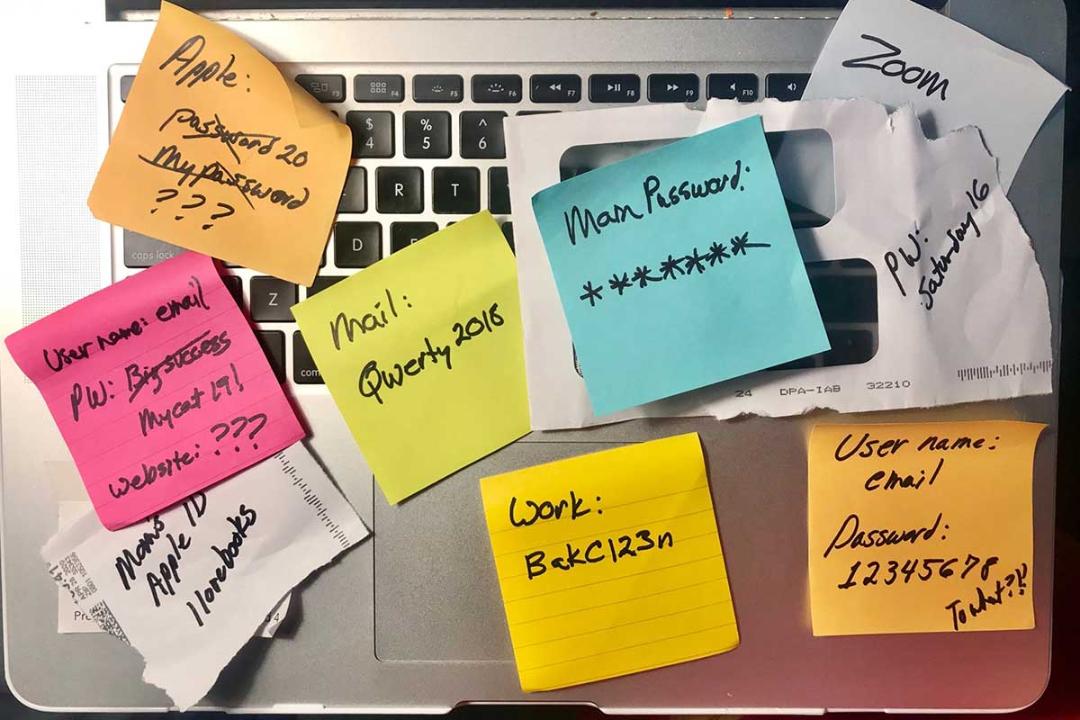 Apple:
password 20
Mypassword
???
Zoom
PW:
Saturday 16
Main Password:
*******
User name: email
PW: Bigsuccess
Mycat 19!
website: ???
Mail:
Qwerty 2016
Mom's
Apple ID
Ilovebooks
Work:
BakC123n
User name:
email
Password:
12345678
To what?!!
24 DPA-IAB 32210
F3
F4
F5
F6
F7
F8
F9
F10
$
4
%
5
^
6
R
T
D
caps lock
Z
com